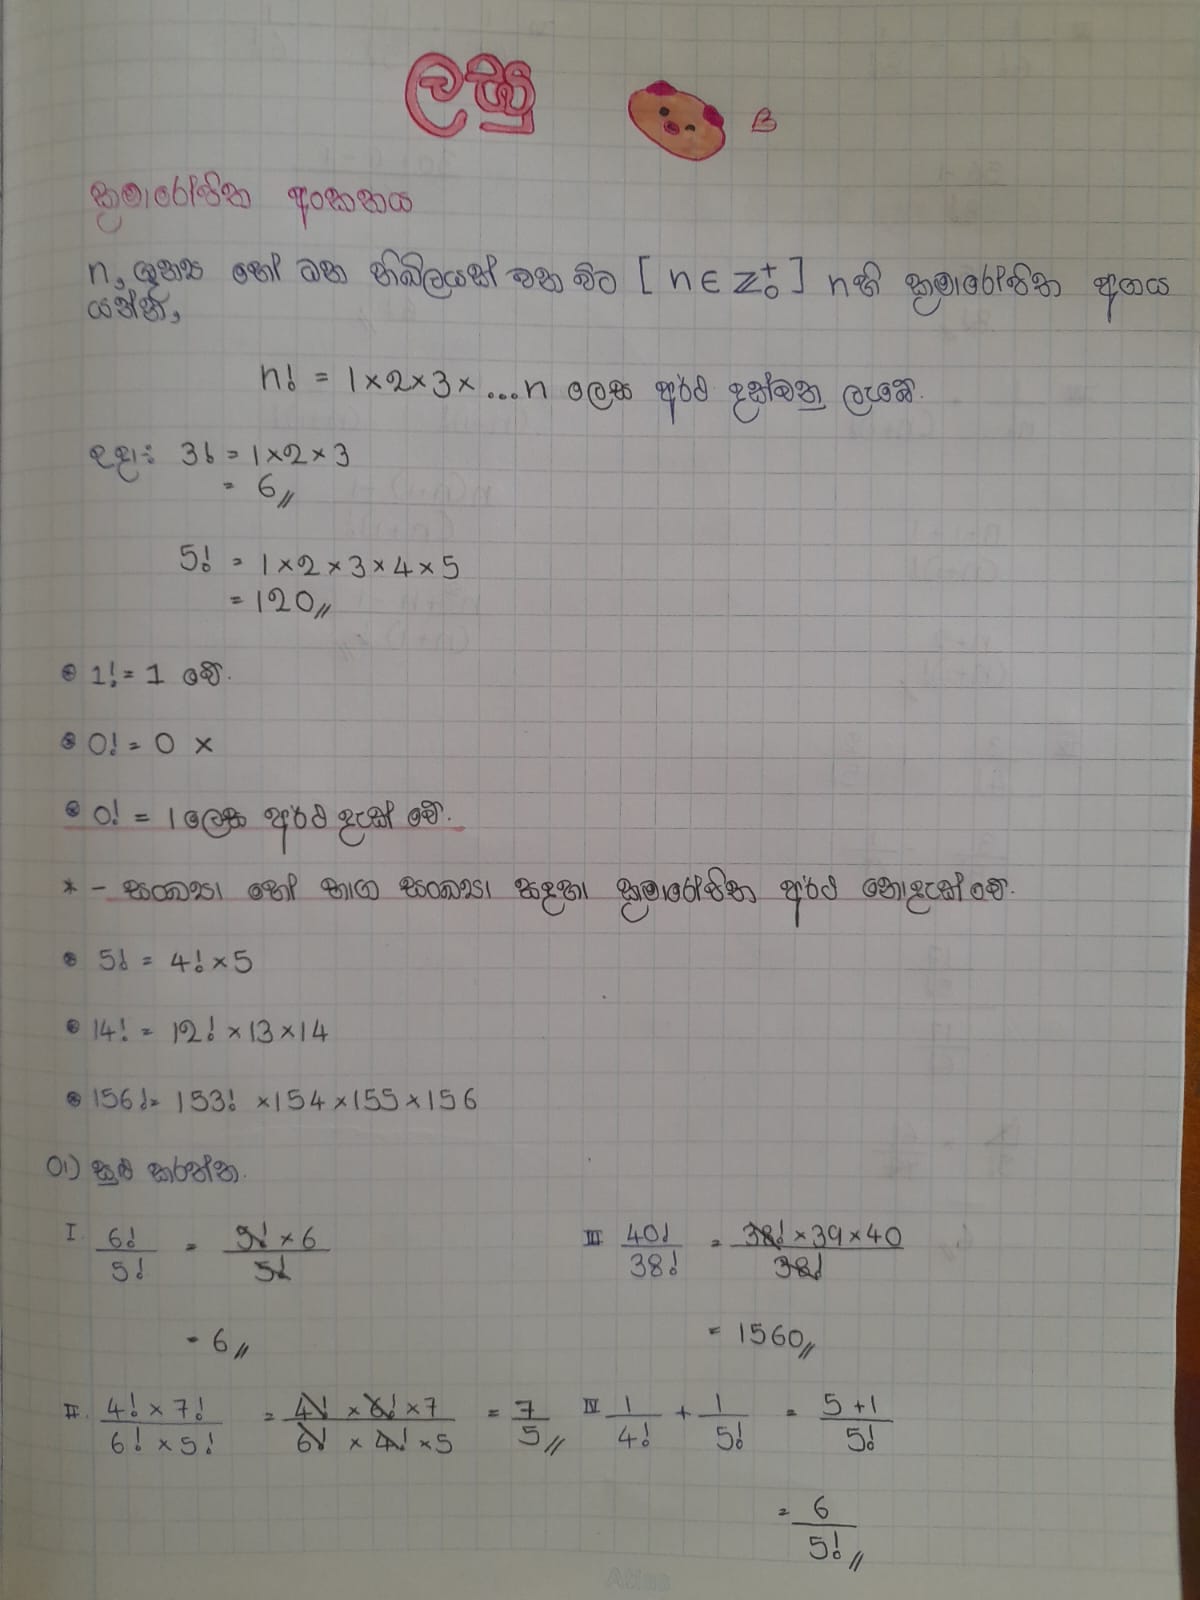 ලඝු
B
ක්‍රමාරෝපිත අංකනය
n, ශුන්‍ය හෝ ධන නිඛිලයක් වන විට [ n ∈ Z₀⁺ ] n හි ක්‍රමාරෝපිත අගය
යන්න,
n! = 1×2×3× ...n ලෙස අර්ථ දක්වනු ලැබේ.
උදා: 3! = 1×2×3
= 6//
5! = 1×2×3×4×5
= 120//
• 1! = 1 වේ.
• 0! = 0 ×
• 0! = 1 ලෙස අර්ථ දැක් වේ.
* - සංඛ්‍යා හෝ භාග සංඛ්‍යා සඳහා ක්‍රමාරෝපිත අර්ථ නොදැක් වේ.
• 5! = 4!×5
• 14! = 12!×13×14
• 156! = 153! ×154×155×156
01) සුළු කරන්න.
I 6!/5! = 5!×6/5!
= 6//
II. 4!×7!/6!×5! = 4!×6!×7/6!×4!×5 = 7/5//
III 40!/38! = 38!×39×40/38!
= 1560//
IV 1/4! + 1/5! = 5+1/5!
= 6/5!//
Atlas